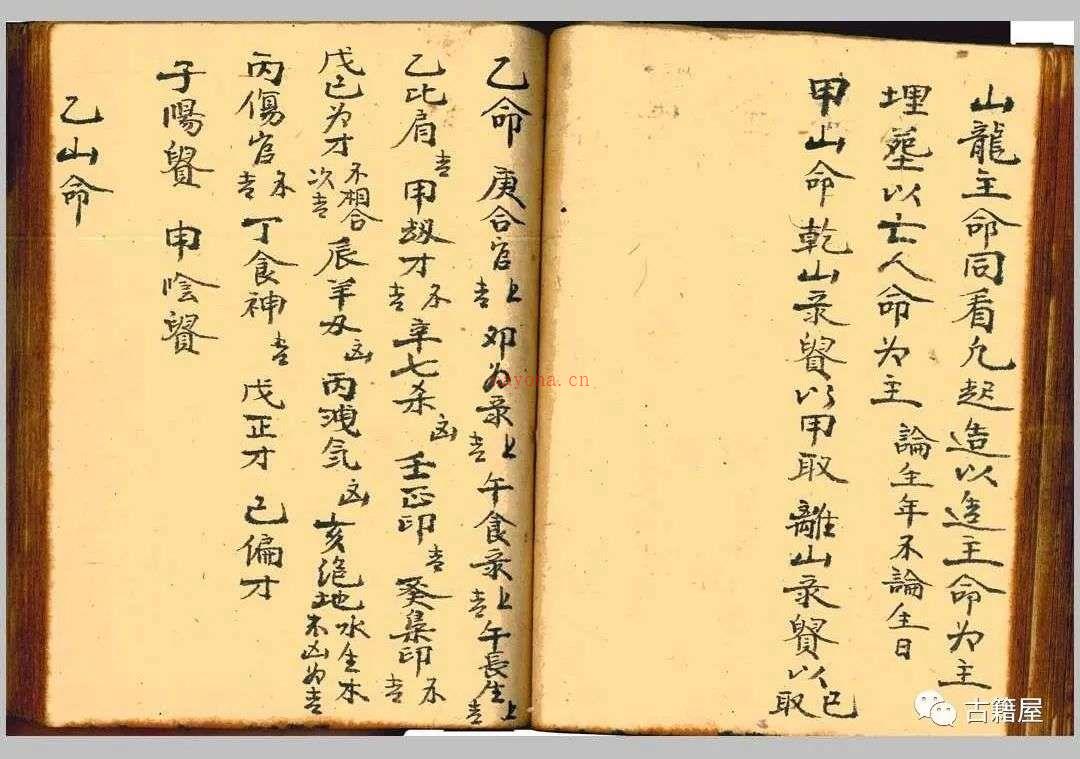 山龍主命同看凢起造以造主命为主
埋塟以亡人命为主 論生年不論生日
甲山命乾山彔貿以甲取 離山彔貿以已取
乙命 庚合官上吉 卯为彔上吉 午食彔上吉 午長生上吉
乙比肩吉 甲刼才不吉 辛七杀凶 壬正印吉 癸梟印不吉
戊己为才不相合次吉 辰羊刃凶 丙洩氣凶 亥絶地水生木不凶为吉
丙傷官不吉 丁食神吉 戊正才 己偏才
子陽貿 申陰貿
乙山命
nayona.cn
古籍屋